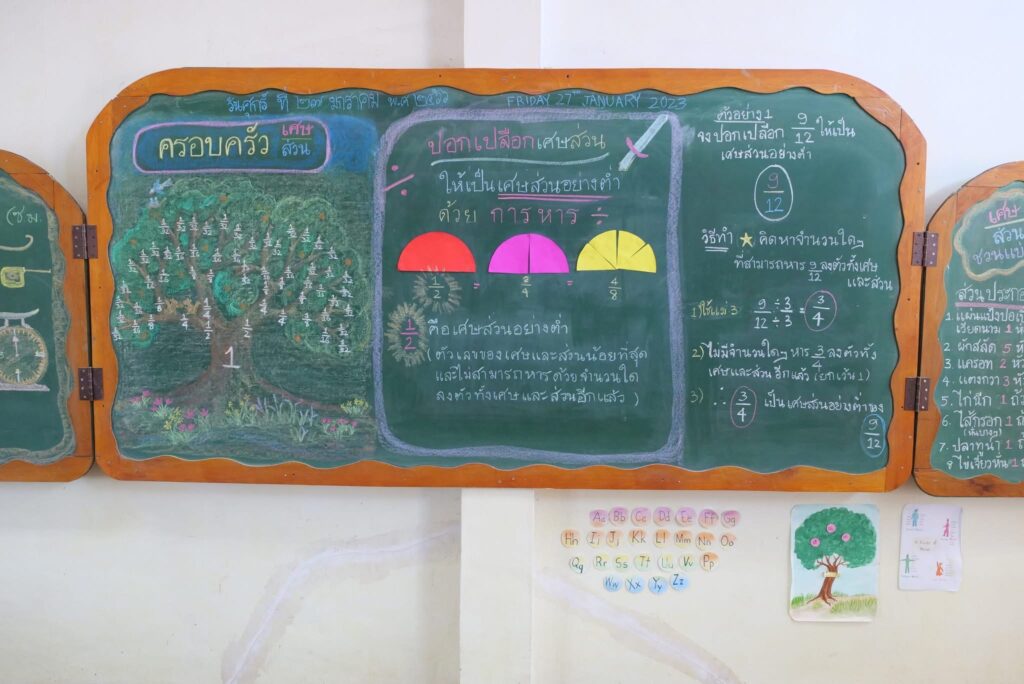 วันศุกร์ ที่ ๒๗ มกราคม พ.ศ ๒๕๖๖
FRIDAY 27TH JANUARY 2023
ครอบครัว เศษ
ส่วน
1
ปอกเปลือกเศษส่วน
ให้เป็นเศษส่วนอย่างต่ำ
ด้วย การหาร ÷
1/2 = 2/4 = 4/8
1/2 คือเศษส่วนอย่างต่ำ
(ตัวเลขของเศษและส่วนน้อยที่สุด
และไม่สามารถหารด้วยจำนวนใด
ลงตัวทั้งเศษและส่วนอีกแล้ว)
ตัวอย่าง 1
จงปอกเปลือก 9/12 ให้เป็น
เศษส่วนอย่างต่ำ
9/12
วิธีทำ ★ คิดหาจำนวนใดๆ
ที่สามารถหาร 9/12 ลงตัวทั้งเศษ
และส่วน
1) ใช้แม่ 3 9/12 ÷3/÷3 = 3/4
2) ไม่มีจำนวนใดๆ หาร 3/4 ลงตัวทั้ง
เศษและส่วนอีกแล้ว (ยกเว้น 1)
3) ∴ 3/4 เป็นเศษส่วนอย่างต่ำของ
9/12
(ซ.ม.
เศษ
ส่วน
ชวนแบ่ง
ส่วนประกอ
1. แผ่นแป้งปอเปี๊
เวียดนาม 1 ห
2. ผักสลัด 5 ห
3. แครอท 2 ห
4. แตงกวา 3 ห
5. ไก่ฉีก 1 ถ้
6. ไส้กรอก 1 ถ้
(หั่นบางๆ)
7. ปลาทูน่า 1 ถ้
8 ไข่เจียวหั่น 1 ถ
Aa Bb Cc Dd Ee Ff Gg
Hh Ii Jj Kk Ll Mm Nn Oo
Qq Rr Ss Tt Uu Vv Pp
Ww Xx Yy Zz